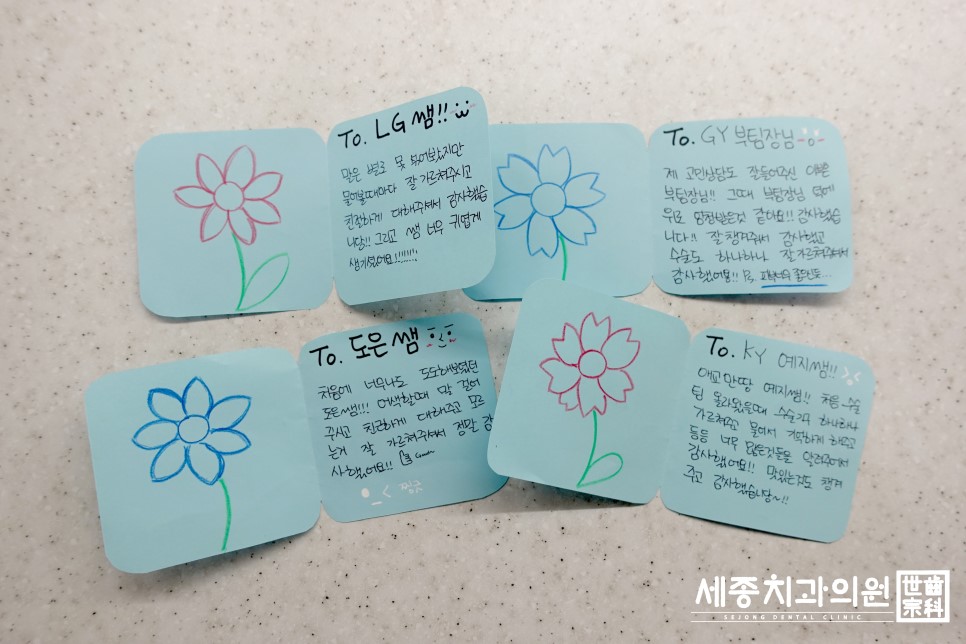 To. LG쌤!!
말은 별로 못 붙여봤지만
물어볼때마다 잘 가르쳐주시고
친절하게 대해주셔서 감사했습
니당!! 그리고 쌤 너무 귀엽게
생기셨어요!!!!!!!
To. GY 부팀장님
제 고민상담도 잘들어주신 이쁜
부팀장님!! 그때 부팀장님 덕에
위로 엄청받은것 같아요!! 감사했습
니다!! 잘 챙겨주셔서 감사했고
수술도 하나하나 잘 가르쳐주셔서
감사했어용!!
To. 도은쌤
처음에 너무나도 도도해보였던
도은쌤!!! 어색할때 말 걸어
주시고 친근하게 대해주고 모르
는거 잘 가르쳐주셔서 정말 감
사했어요!!
찡긋
To. KY 예지쌤!!
애교만땅 예지쌤!! 처음 수술
팀 올라왔을때 수술기구 하나하나
가르쳐주고 물어서 기억하게 해주고
등등 너무 많은것들을 알려주셔서
감사했어요!! 맛있는것도 챙겨
주고 감사했습니당~!!
세종치과의원
SEJONG DENTAL CLINIC
世宗齒科